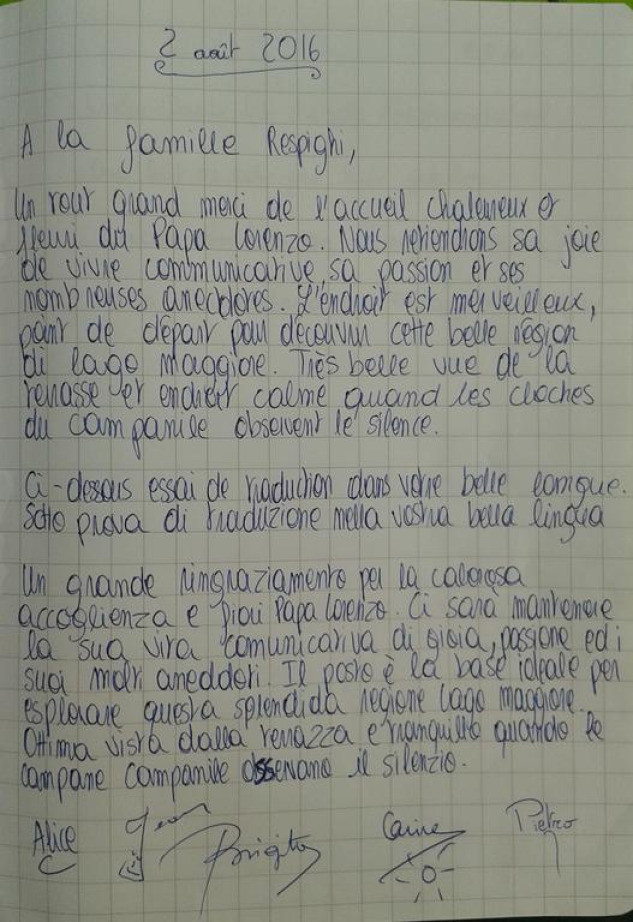 2 août 2016
A la famille Respighi,
Un tout grand merci de l'accueil chaleureux et
fleuri du Papa Lorenzo. Nous retiendrons sa joie
de vivre communicative, sa passion et ses
nombreuses anecdotes. L'endroit est merveilleux,
point de départ pour découvrir cette belle région
di lago maggiore. Très belle vue de la
terrasse et endroit calme quand les cloches
du campanile observent le silence.
Ci-dessous essai de traduction dans votre belle langue.
Sotto prova di traduzione nella vostra bella lingua
Un grande ringraziamento per la calorosa
accoglienza e fiori Papa Lorenzo. Ci sarà mantenere
la sua vita comunicativa di gioia, passione ed i
suoi molti aneddoti. Il posto è la base ideale per
esplorare questa splendida regione lago maggiore.
Ottima vista dalla terrazza e tranquillo quando le
campane campanile osservano il silenzio.
Alice Jean Brigitte Carine Pietro